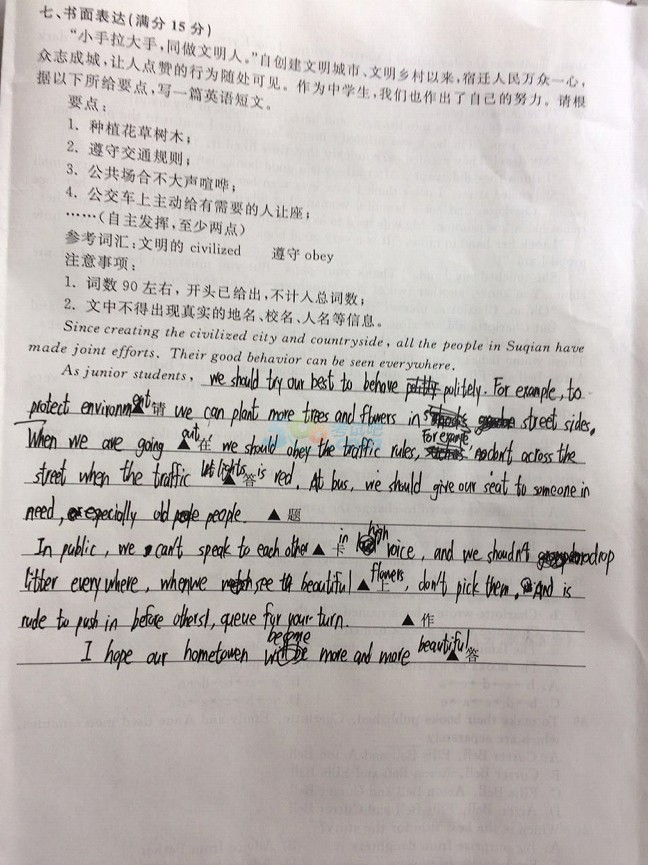 七、书面表达(满分 15 分)
“小手拉大手,同做文明人。”自创建文明城市、文明乡村以来,宿迁人民万众一心,
众志成城,让人点赞的行为随处可见。作为中学生,我们也作出了自己的努力。请根
据以下所给要点,写一篇英语短文。
要点:
1. 种植花草树木;
2. 遵守交通规则;
3. 公共场合不大声喧哗;
4. 公交车上主动给有需要的人让座;
……(自主发挥,至少两点)
参考词汇:文明的 civilized 遵守 obey
注意事项:
1. 词数 90 左右,开头已给出,不计入总词数;
2. 文中不得出现真实的地名、校名、人名等信息。
Since creating the civilized city and countryside, all the people in Suqian have
made joint efforts. Their good behavior can be seen everywhere.
As junior students, we should try our best to behave politely. For example, to
protect environment 请 we can plant more trees and flowers in street sides.
When we are going out ▲ 在 we should obey the traffic rules, for example don't across the
street when the traffic lights ▲ 答 is red. At bus, we should give our seat to someone in
need, especially old people. ▲ 题
In public, we can't speak to each other ▲ 卡 in high voice, and we shoudn't drop
litter every where, when we see beautiful ▲ 上 flowers, don't pick them, And is
rude to push in before others, queue for your turn. ▲ 作
I hope our hometowen become more and more beautiful ▲ 答